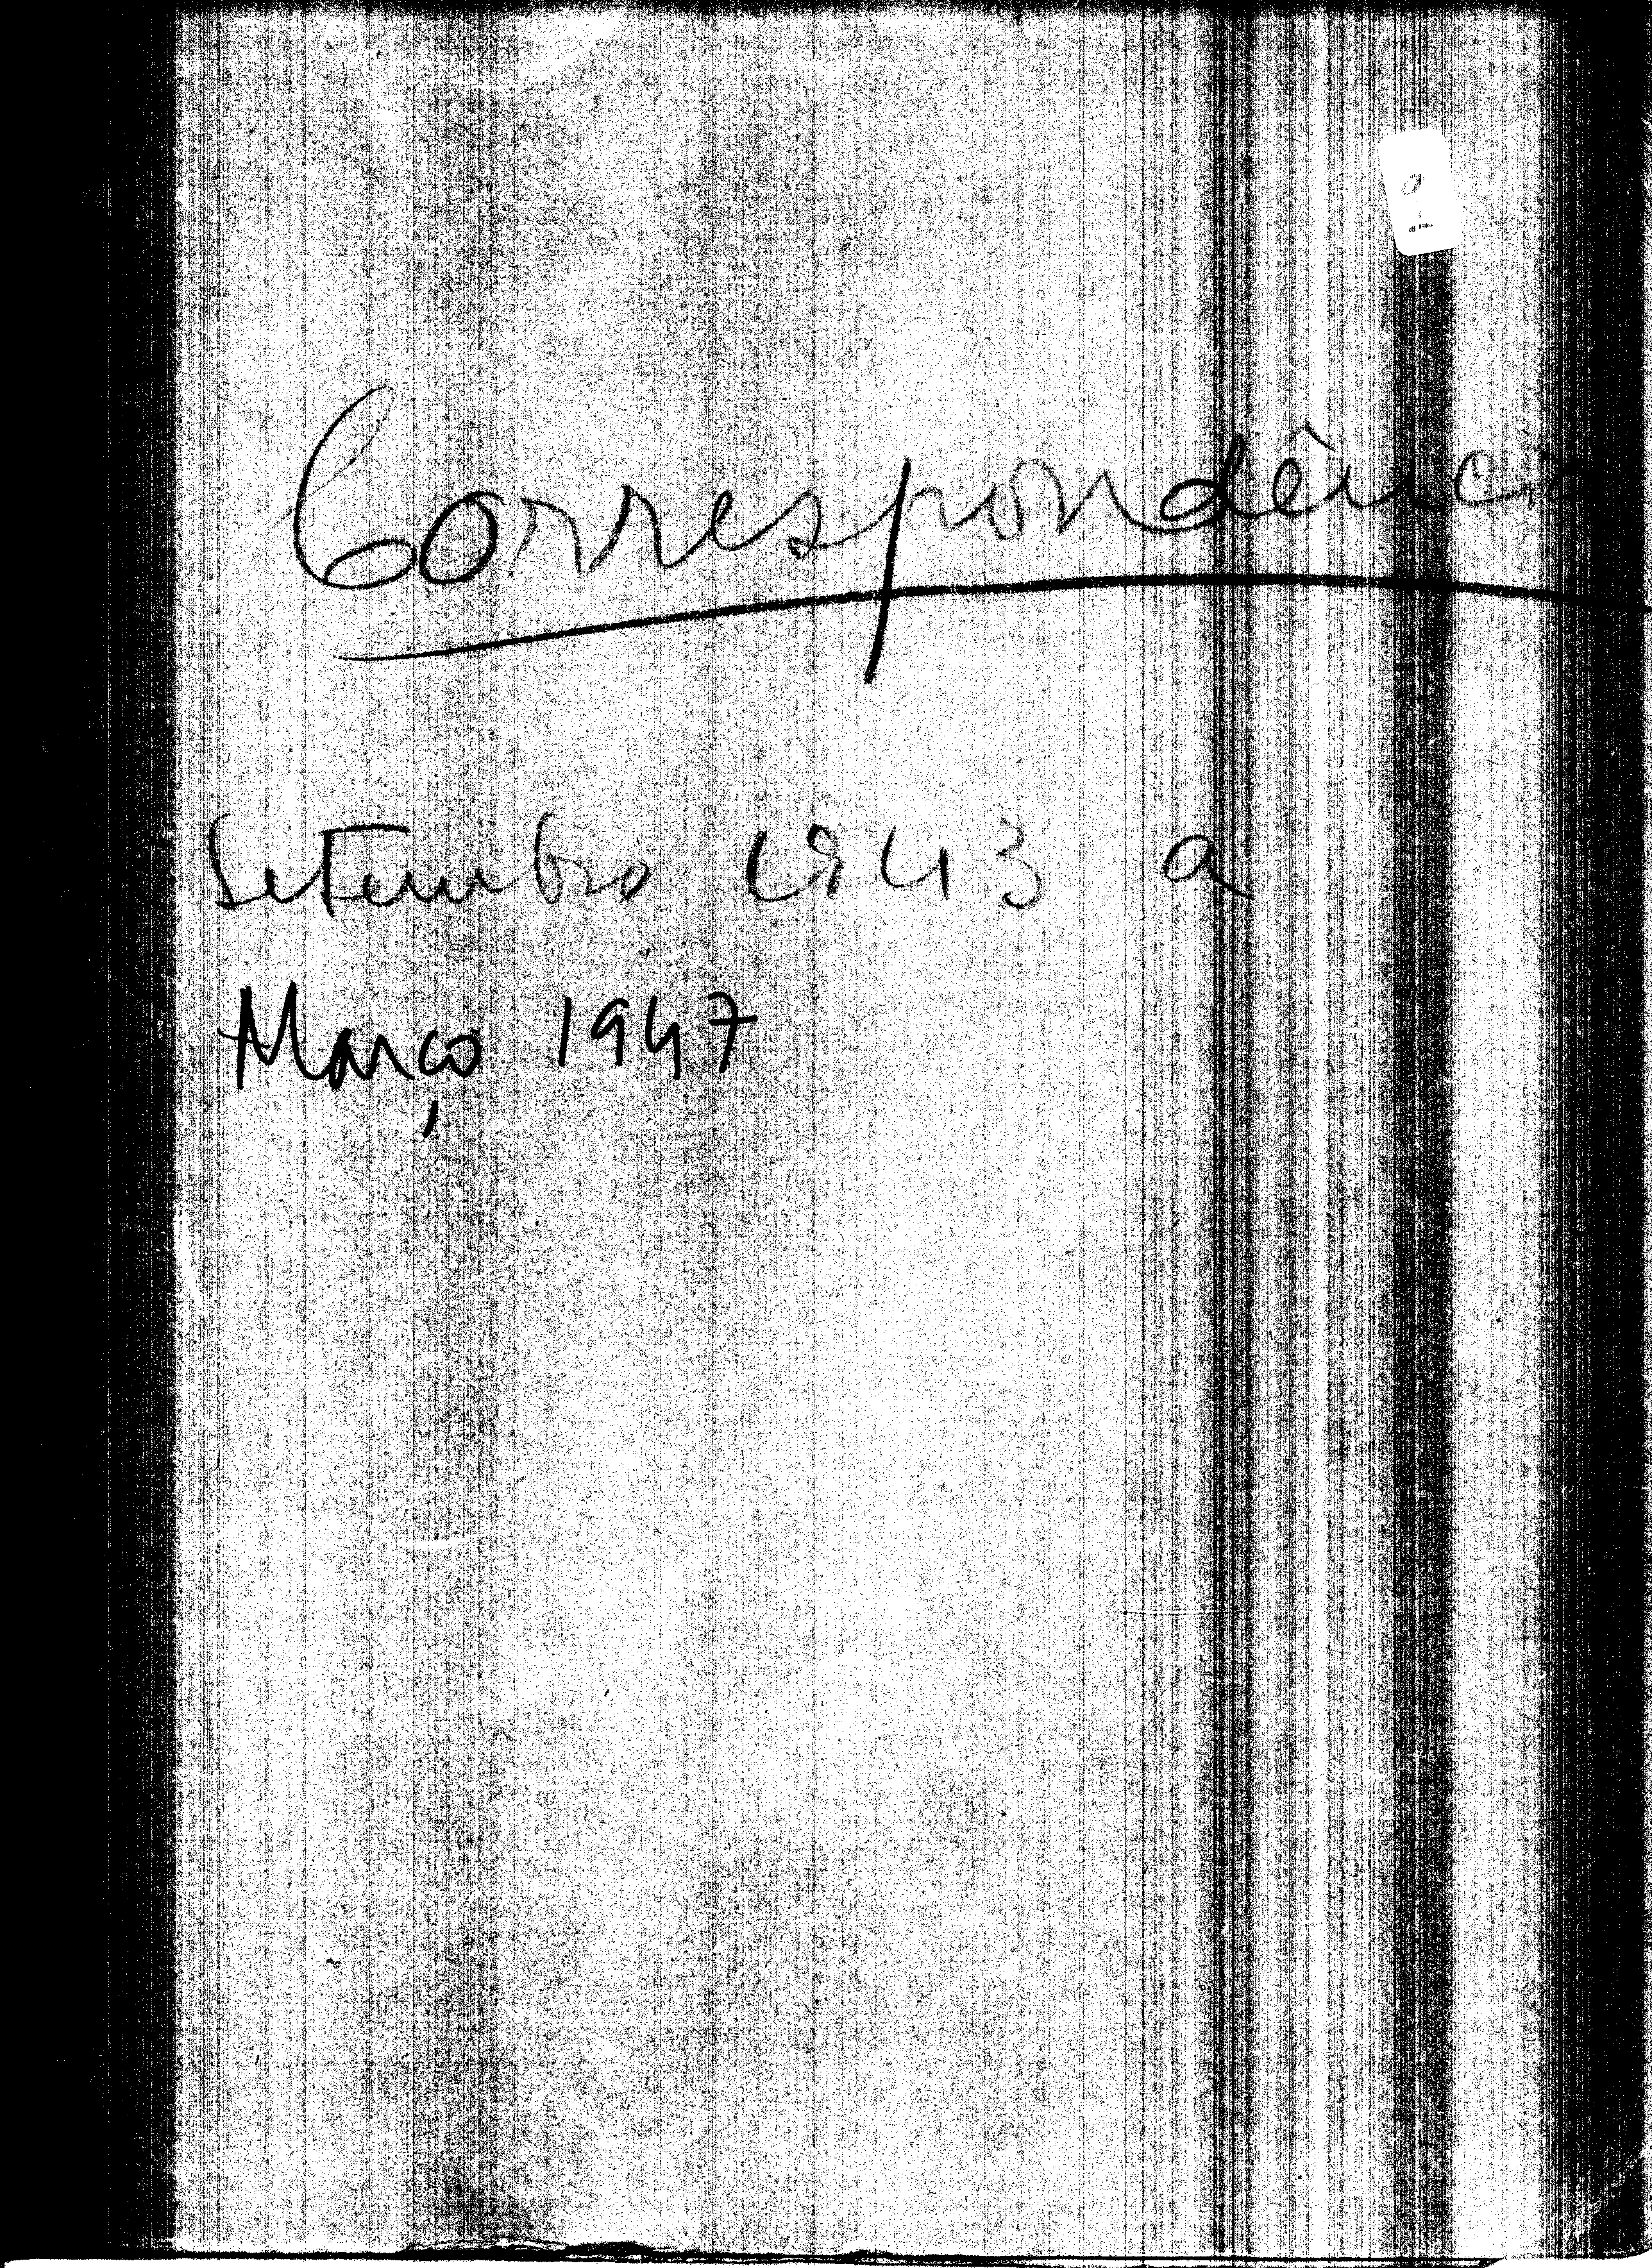 Correspondência
Setembro 1943 a
Março 1947